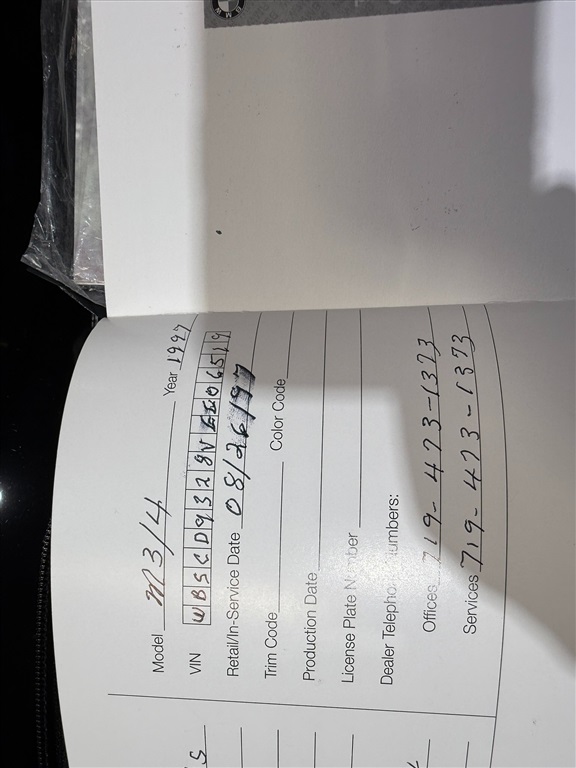 BMW
Model M3/4 Year 1997
VIN WBSCD9328VEE06519
Retail/In-Service Date 08/26/97
Trim Code Color Code
Production Date
License Plate Number
Dealer Telephone Numbers:
Offices 719-473-1373
Services 719-473-1373